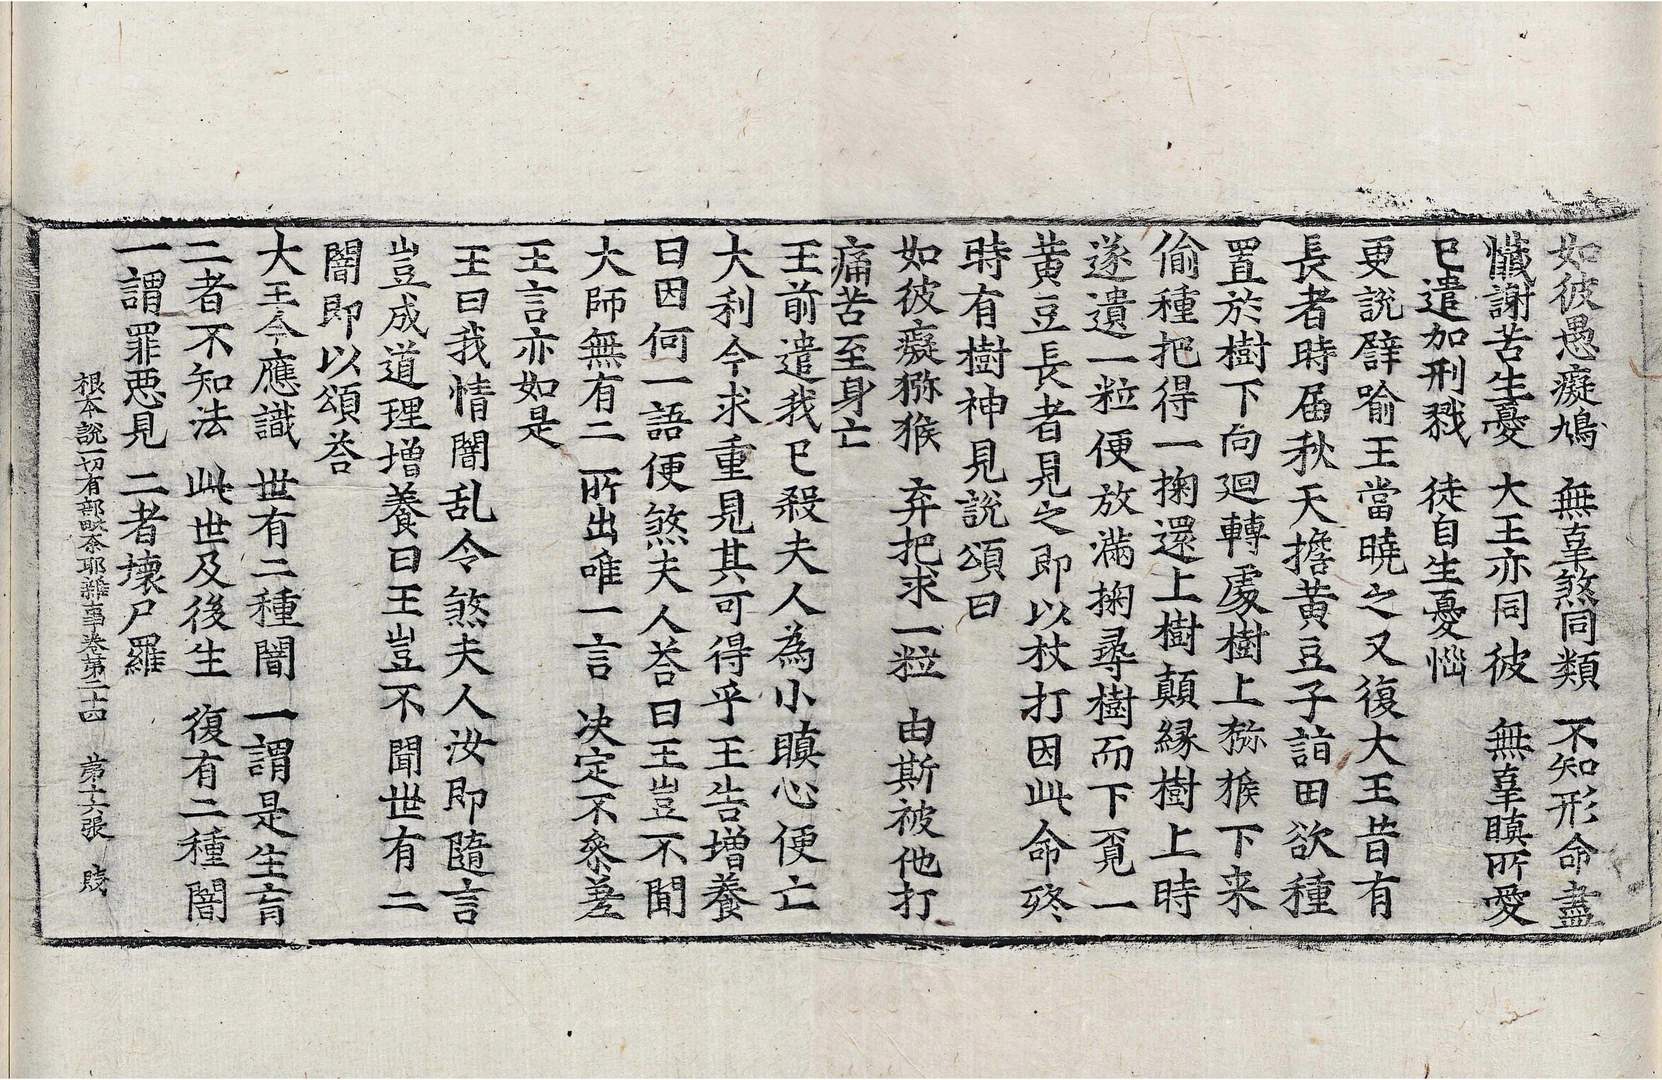 如彼愚癡鳩　無辜煞同類　不知形命盡
懺謝苦生憂　大王亦同彼　無辜瞋所愛
已遣加刑戮　徒自生憂惱
更說譬喻王當曉之又復大王昔有
長者時届秋天擔黃豆子詣田欲種
置於樹下向迴轉處樹上獼猴下来
偷種把得一掬還上樹顛緣樹上時
遂遺一粒便放滿掬尋樹而下覓一
黃豆長者見之即以杖打因此命終
時有樹神見說頌曰
如彼癡獼猴　弃把求一粒　由斯被他打
痛苦至身亡
王前遣我已殺夫人為小瞋心便亡
大利今求重見其可得乎王告增養
曰因何一語便煞夫人荅曰王豈不聞
大師無有二　所出唯一言　決定不叅差
王言亦如是
王曰我情闇乱令煞夫人汝即隨言
豈成道理增養曰王豈不聞世有二
闇即以頌荅
大王今應識　世有二種闇　一謂是生盲
二者不知法　此世及後生　復有二種闇
一謂罪惡見　二者壞尸羅
根本說一切有部毗奈耶雜事卷第二十四　第十六張